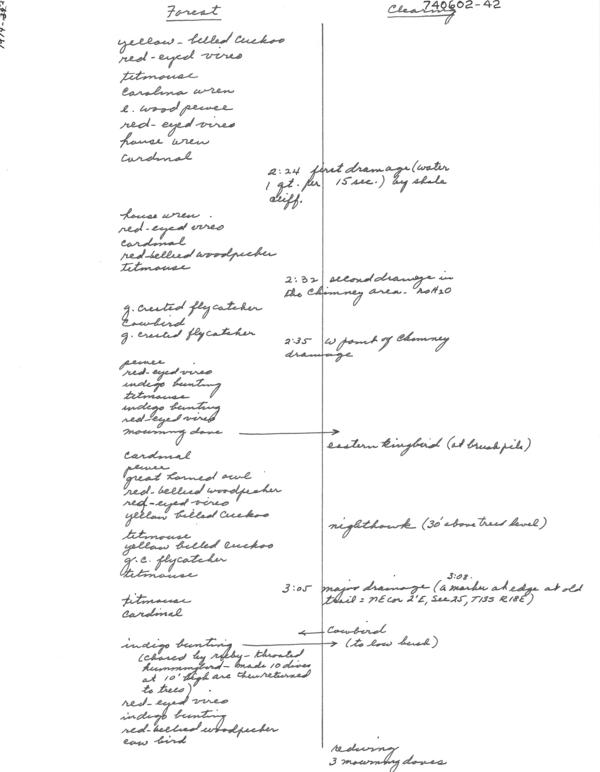 740602-42
Forest
Clearing
yellow-billed cuckoo
red-eyed vireo
titmouse
Carolina wren
e. wood pewee
red-eyed vireo
house wren
cardinal
2:24 first drainage (water
1 qt. per 15 sec.) by shale
cliff.
house wren.
red-eyed vireo
cardinal
red-bellied woodpecker
titmouse
2:32 second drainage in
the Chimney area. no H2O
g. crested flycatcher
Cowbird
g. crested flycatcher
2:35 w point of Chimney
drainage
pewee
red-eyed vireo
indigo bunting
titmouse
indigo bunting
red-eyed vireo
mourning dove
eastern kingbird (at brush pile)
cardinal
pewee
great horned owl
red-bellied woodpecker
red-eyed vireo
yellow billed cuckoo
nighthawk (30' above tree level)
titmouse
yellow billed cuckoo
g.c. flycatcher
titmouse
3:08.
3:05 major drainage (a marker at edge at old
trail = NE cor 2'E, Sec 25, T15S R18E)
titmouse
cardinal
Cowbird
indigo bunting (to low bush)
(chased by ruby-throated
hummingbird - made 10 dives
at 10' high are then returned
to trees)
red-eyed vireo
indigo bunting
red-bellied woodpecker
cow bird
redwing
3 mourning doves